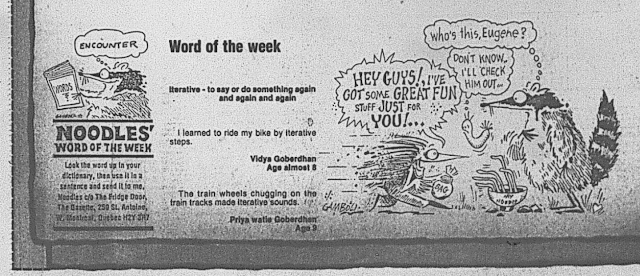 ENCOUNTER
WORDS
NOODLES'
WORD OF THE WEEK
Look the word up in your
dictionary, then use it in a
sentence and send it to me,
Noodles c/o The Fridge Door,
The Gazette, 250 St. Antoine,
W. Montreal, Quebec H2Y 3R7
Word of the week
Iterative - to say or do something again
and again and again
I learned to ride my bike by iterative
steps.
Vidya Goberdhan
Age almost 8
The train wheels chugging on the
train tracks made iterative sounds.
Priya watie Goberdhan
Age 9
Who's this, Eugene?
DON'T KNOW,
I'LL CHECK
HIM OUT...
HEY GUYS!, I'VE
GOT SOME GREAT FUN
STUFF JUST FOR
YOU!...
GAMBOLI